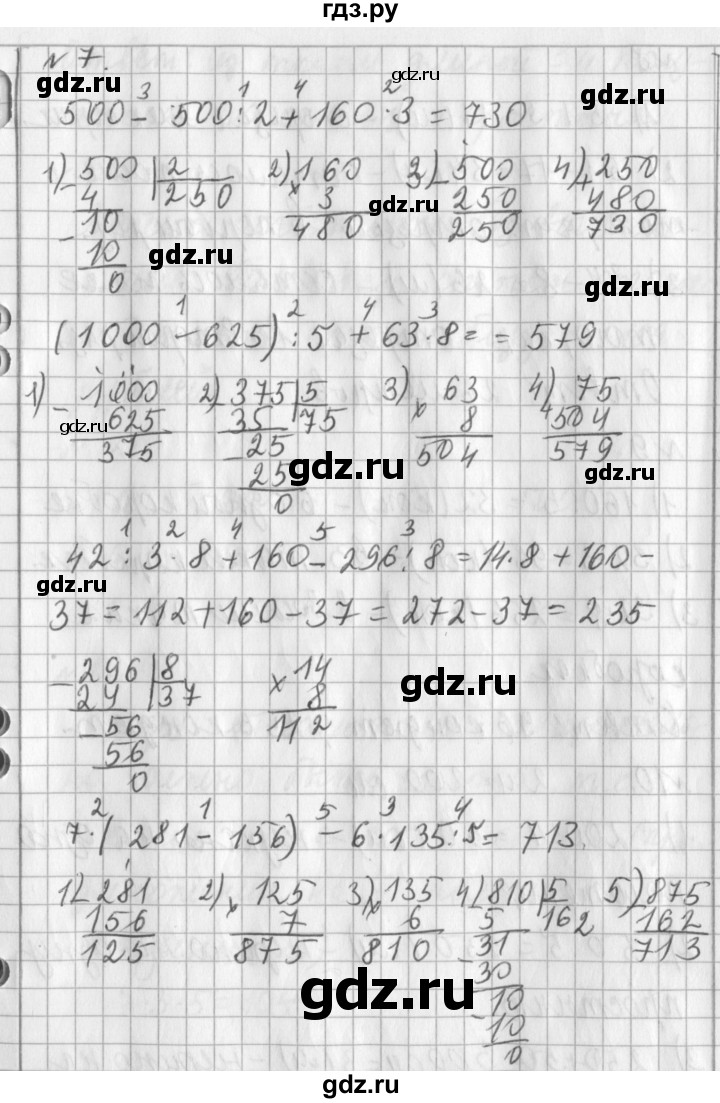 гдз.ру
№ 7.
gdz.ru gdz.ru gdz.ru
3 1 4 2
500 - 500 : 2 + 160 · 3 = 730
1) 500 | 2 2) 160 3) 500 4) 250
- 4 | 250 × 3 - 250 + 480
10 480 250 730
- 10 gdz.ru
0
gdz.ru gdz.ru
1 2 4 3
(1000 - 625) : 5 + 63 · 8 = = 579
1) 1000 2) 375 | 5 3) 63 4) 75
- 625 - 35 | 75 × 8 + 504
375 25 504 579
gdz.ru - 25 gdz.ru gdz.ru
0
1 2 4 5 3
42 : 3 · 8 + 160 - 296 : 8 = 14 · 8 + 160 -
gdz.ru
37 = 112 + 160 - 37 = 272 - 37 = 235
- 296 | 8 14
24 | 37 × 8
- 56 112
56 gdz.ru
0
2 1 5 3 4
7 · ( 281 - 156) - 6 · 135 : 5 = 713.
1) 281 2) 125 3) 135 4) 810 | 5 5) 875
- 156 × 7 × 6 - 5 | 162 - 162
125 875 810 31 713
- 30
10
- 10
0
gdz.ru
gdz.ru